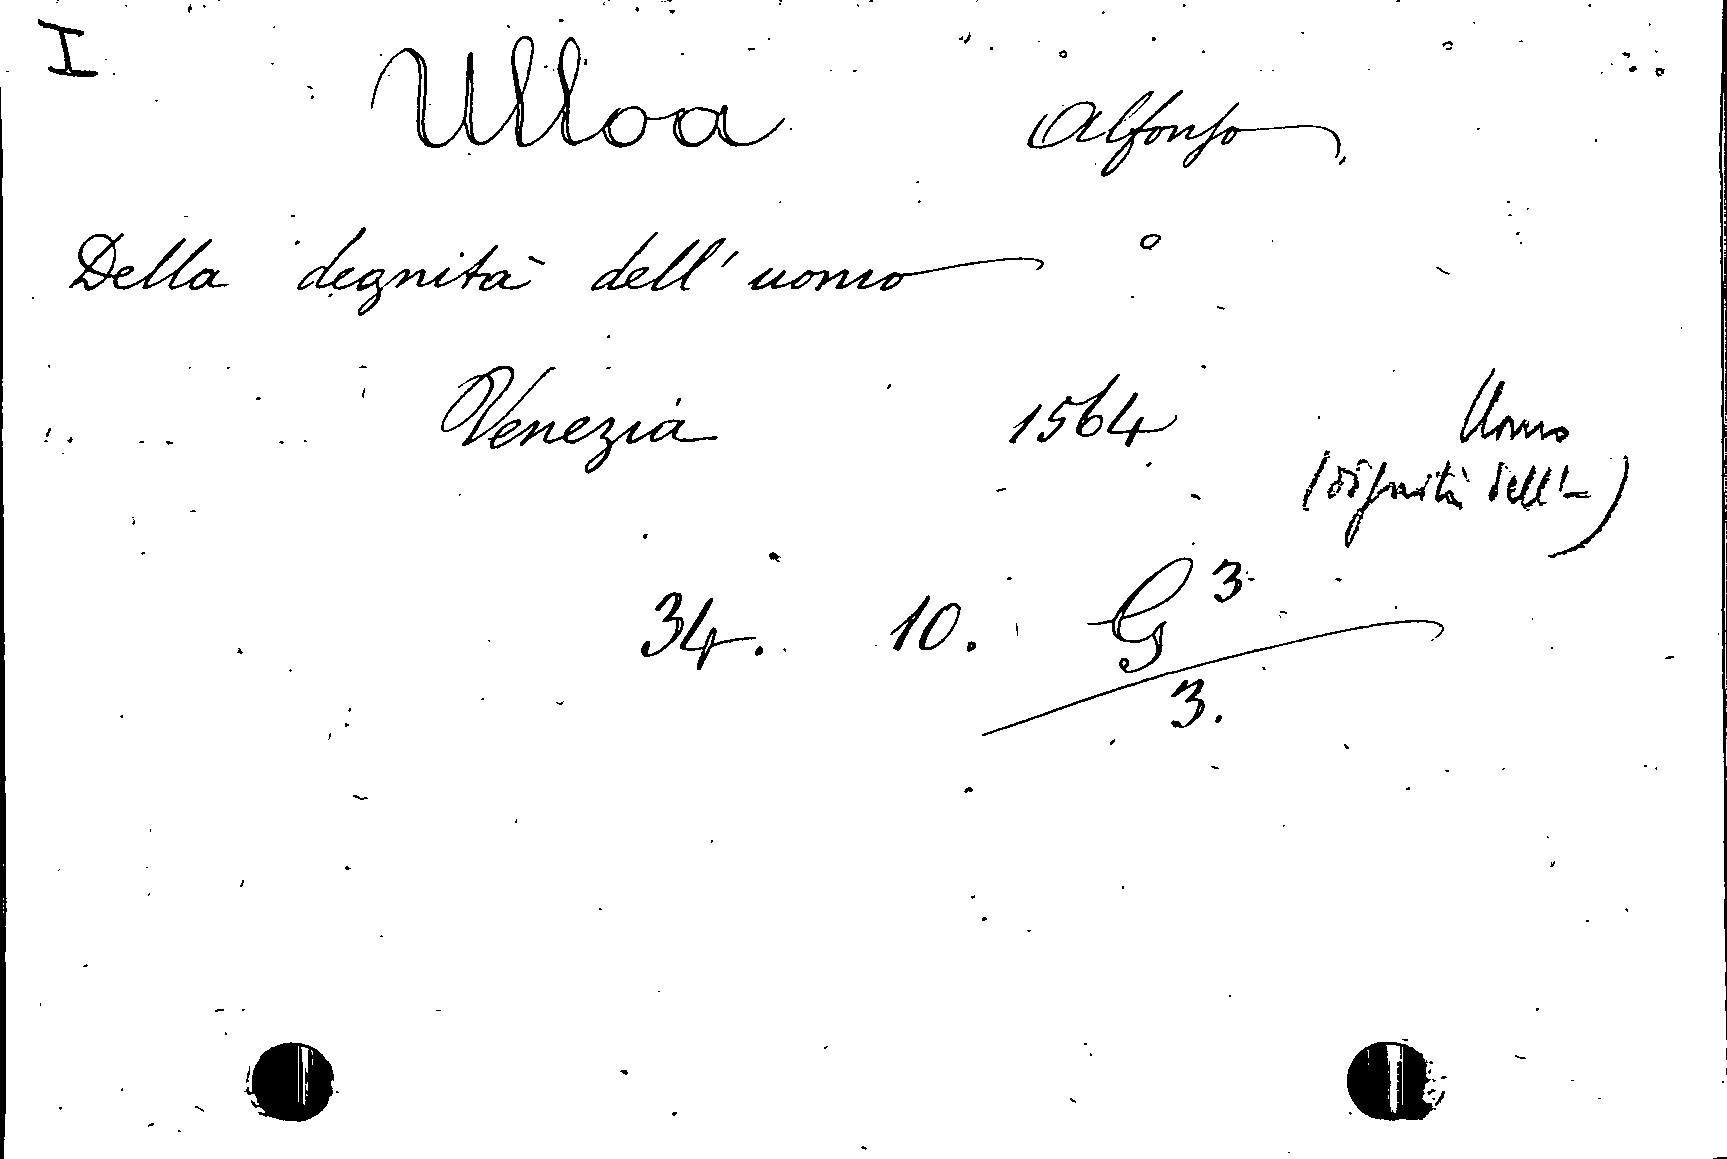 I
Ulloa Alfonso
Della degnità dell'uomo
Venezia 1564 Uomo
(dignità dell'-)
34. 10. G 3
3.